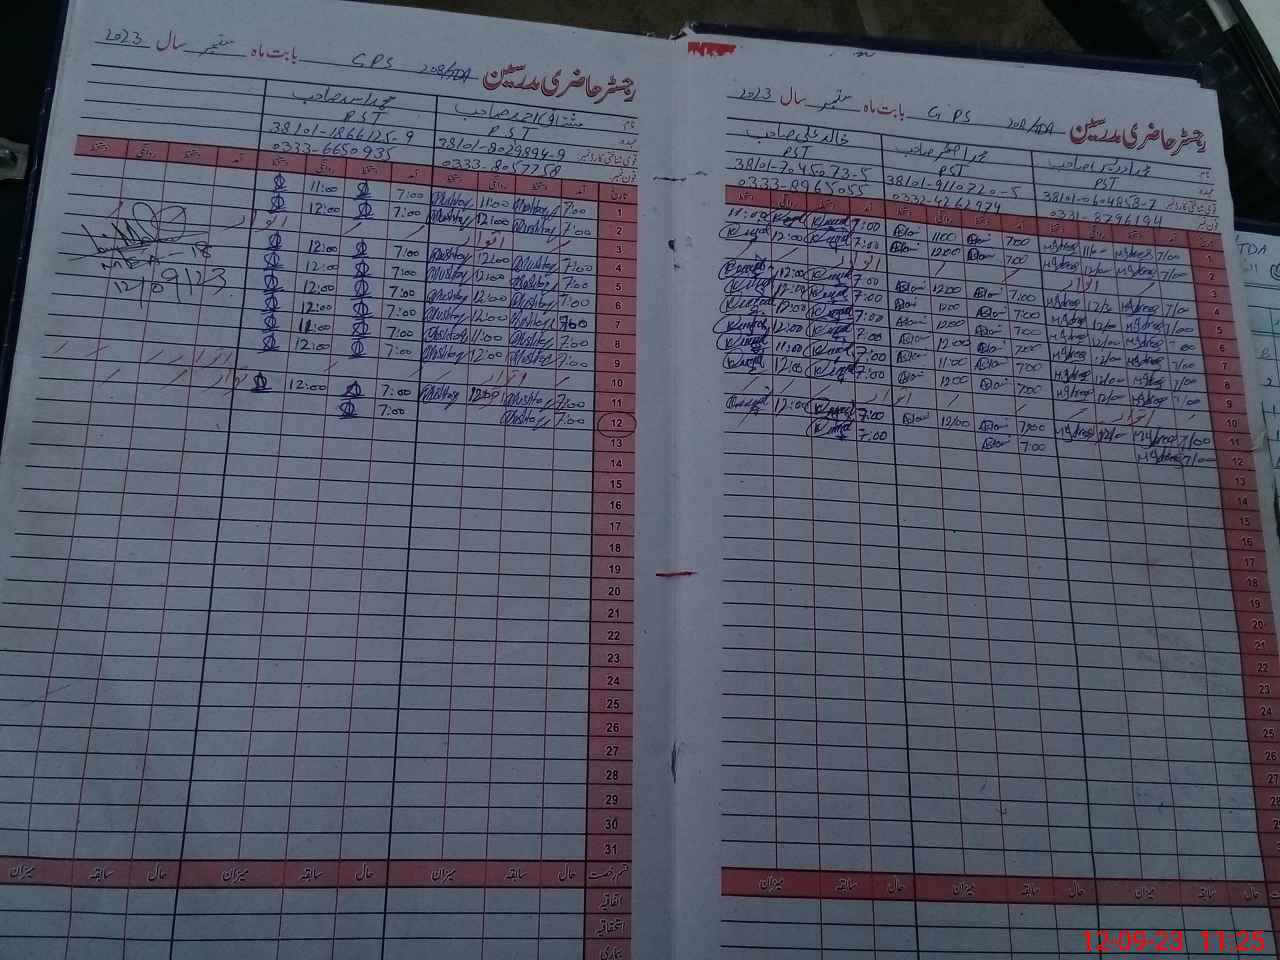 رجسٹر حاضری مدرسین GPS 208/TDA بابت ماہ ستمبر سال 2023
نام خالد علی صاحب
عہدہ PST PST PST
قومی شناختی کارڈ نمبر 38101-0604858-7 38101-9110720-5 38101-7045073-5
فون نمبر 0331-8296194 0332-4262974 0333-8965055
تاریخ آمد دستخط روانگی دستخط آمد دستخط روانگی دستخط آمد دستخط روانگی دستخط
1 7/00 11/00 7:00 11:00 7:00 11:00
2 7/00 12/00 7:00 12:00 7:00 12:00
3 اتوار
4 7/00 12/00 7:00 12:00 7:00 12:00
5 7/00 12/00 7:00 12:00 7:00 12:00
6 7/00 12/00 7:00 12:00 7:00 12:00
7 7/00 12/00 7:00 12:00 7:00 12:00
8 7/00 11:00 7:00 11:00
9 7/00 12/00 7:00 12:00 7:00 12:00
10 اتوار
11 7/00 12/00 7:00 12/00 7:00 12:00
12 7/00 7:00 7:00
13
14
15
16
17
18
19
20
21
22
23
24
25
26
27
28
حال سابقہ میزان حال سابقہ میزان
رجسٹر حاضری مدرسین GPS 208/TDA بابت ماہ ستمبر سال 2023
نام مشتاق احمد صاحب محمد اسد صاحب
عہدہ PST PST
قومی شناختی کارڈ نمبر 38101-9029894-9 38101-1866125-9
فون نمبر 0333-8057758 0333-6650935
تاریخ آمد دستخط روانگی دستخط آمد دستخط روانگی دستخط آمد دستخط روانگی دستخط
1 7:00 Mushtaq 11:00 Mushtaq 7:00 11:00
2 7:00 Mushtaq 12:00 Mushtaq 7:00 12:00
3 اتوار
4 7:00 Mushtaq 12:00 Mushtaq 7:00 12:00
5 7:00 Mushtaq 12:00 Mushtaq 7:00 12:00
6 7:00 Mushtaq 12:00 Mushtaq 7:00 12:00
7 7:00 Mushtaq 12:00 Mushtaq 7:00 12:00
8 7:00 Mushtaq 11:00 Mushtaq 7:00 11:00
9 7:00 Mushtaq 12:00 Mushtaq 7:00 12:00
10 اتوار
11 7:00 Mushtaq 12:00 Mushtaq 7:00 12:00
12 7:00 Mushtaq 7:00
13
14
15
16
17
18
19
20
21
22
23
24
25
26
27
28
29
30
31
قسم رخصت حال سابقہ میزان حال سابقہ میزان حال سابقہ میزان
اتفاقیہ
استحقاقیہ
بیماری
MEA-18
12/09/23
12-09-23 11:25